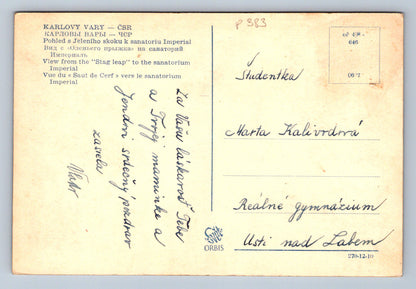 KARLOVY VARY – ČSR
КАРЛОВЫ ВАРЫ – ЧСР
Pohled s Jeleního skoku k sanatoriu Imperial
Вид с «Оленьего прыжка» на санаторий
Империаль
View from the "Stag leap" to the sanatorium
Imperial
Vue du «Saut de Cerf» vers le sanatorium
Imperial
p 383
Za Vaši láskavosť Tebe
a Tvojej maminke a
srdečný pozdrav
zasiela
Študentka
Marta Kalivodová
Reálné gymnázium
Usti nad Labem
ORBIS
270-12-10